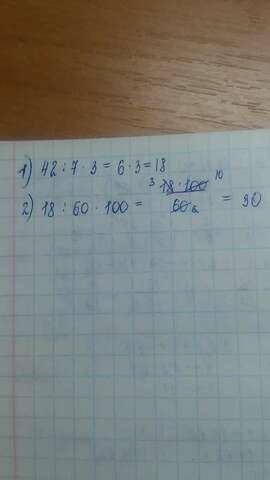 1) 42 : 7 · 3 = 6 · 3 = 18
2) 18 : 60 · 100 = 3 18 · 100 10 / 60 6 = 30